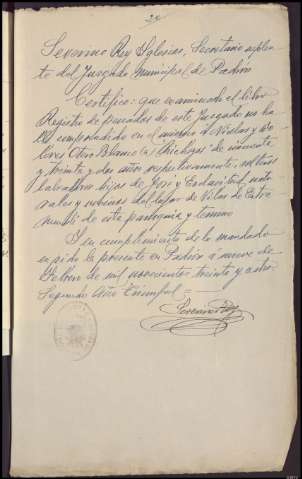 Severino Rey Iglesias, Secretario suplen-
te del Juzgado Municipal de Padrón
Certifico: Que examinado el libro
Registro de penados de este Juzgado no ha
comprobado en el mismo a Nicolas y Do-
lores Otero Blanco (a) Chichojas de cincuenta
y treinta y dos años respectivamente, solteros
labradores hijos de José y Esclavitud natu-
rales y vecinos del lugar de Vilar de Extra-
mundi de este parroquia y termino
Y en cumplimiento de lo mandado
expido la presente en Padrón a nueve de
Febrero de mil novecientos treinta y ocho
Segundo Año Triunfal =
Severino Rey